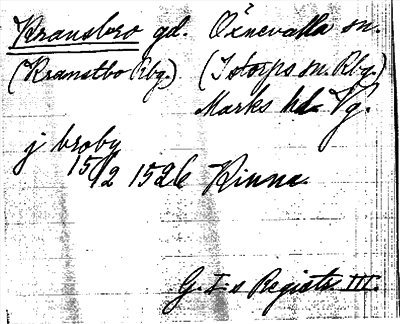 Kransbro gd. Öxnevalla sn.
(Kranstbo Rbg.) (Istorps sn. Rbg.)
Marks hd. Vg.
j broby
15/2 1526 Kinne
G. I:s Registr. III.